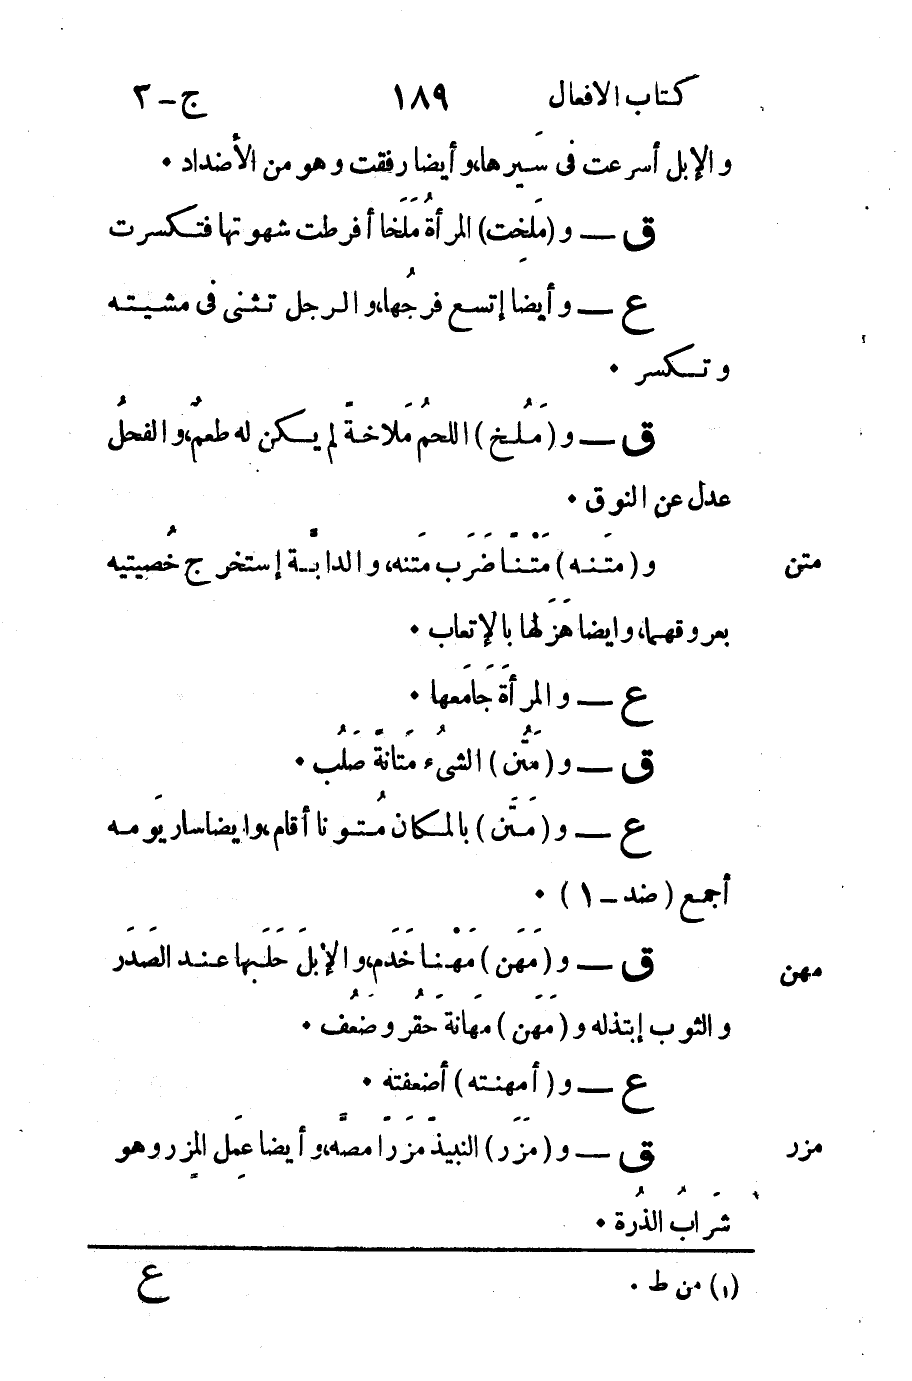 كتاب الافعال ١٨٩ ج-٣
و الإبل أسرعت فى سَيرها، و أيضا رفقت و هو من الأضداد ٠
ق — و (مَلِخت) المرأةُ مَلَخا أفرطت شهوتها فتكسرت
ع — و أيضا إتسع فرجُها، و الرجل تثنى فى مشيته
و تكسر ٠
ق — و (مَلُخ) اللحمُ مَلاخةً لم يكن له طعمٌ، و الفحلُ
عدل عن النوق ٠
متن و (متَنه) مَتْنًا ضَرَب متَنه، و الدابَّة إستخرج خُصيتيه
بعروقهما، و ايضا هَزَلها بالإتعاب ٠
ع — و المرأةَ جَامَعها ٠
ق — و (مَتُن) الشىُء مَتانةً صَلُب ٠
ع — و (مَتَن) بالمكان مُتونا أقام، و ايضا سار يَومه
أجمع (ضد - ١) ٠
مهن ق — و (مَهَن) مَهْنا خَدَم، و الإبلَ حَلَبها عند الصَدَر
و الثوب إبتذله و (مَهَن) مَهَانة حَقُر و ضَعُف ٠
ع — و (أمهنته) أضعفته ٠
مزر ق — و (مَزَر) النبيذَ مَزَرًا مصَّه، و أيضا عمِل المِزر و هو
شَرابُ الذُرة ٠
(١) من ط ٠ ع